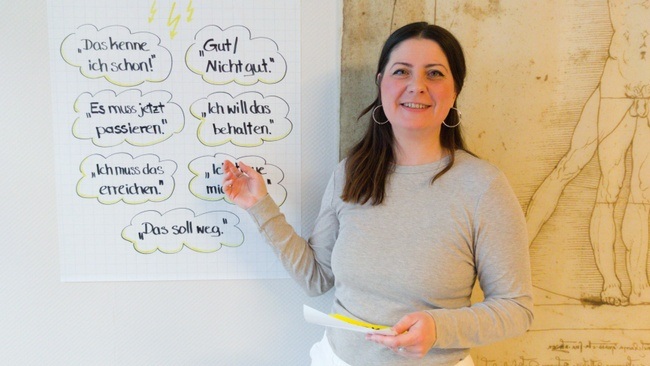 „Das kenne
ich schon!"
„Gut/
Nicht gut."
„Es muss jetzt
passieren."
„Ich will das
behalten."
„Ich muss das
erreichen."
„Das soll weg."